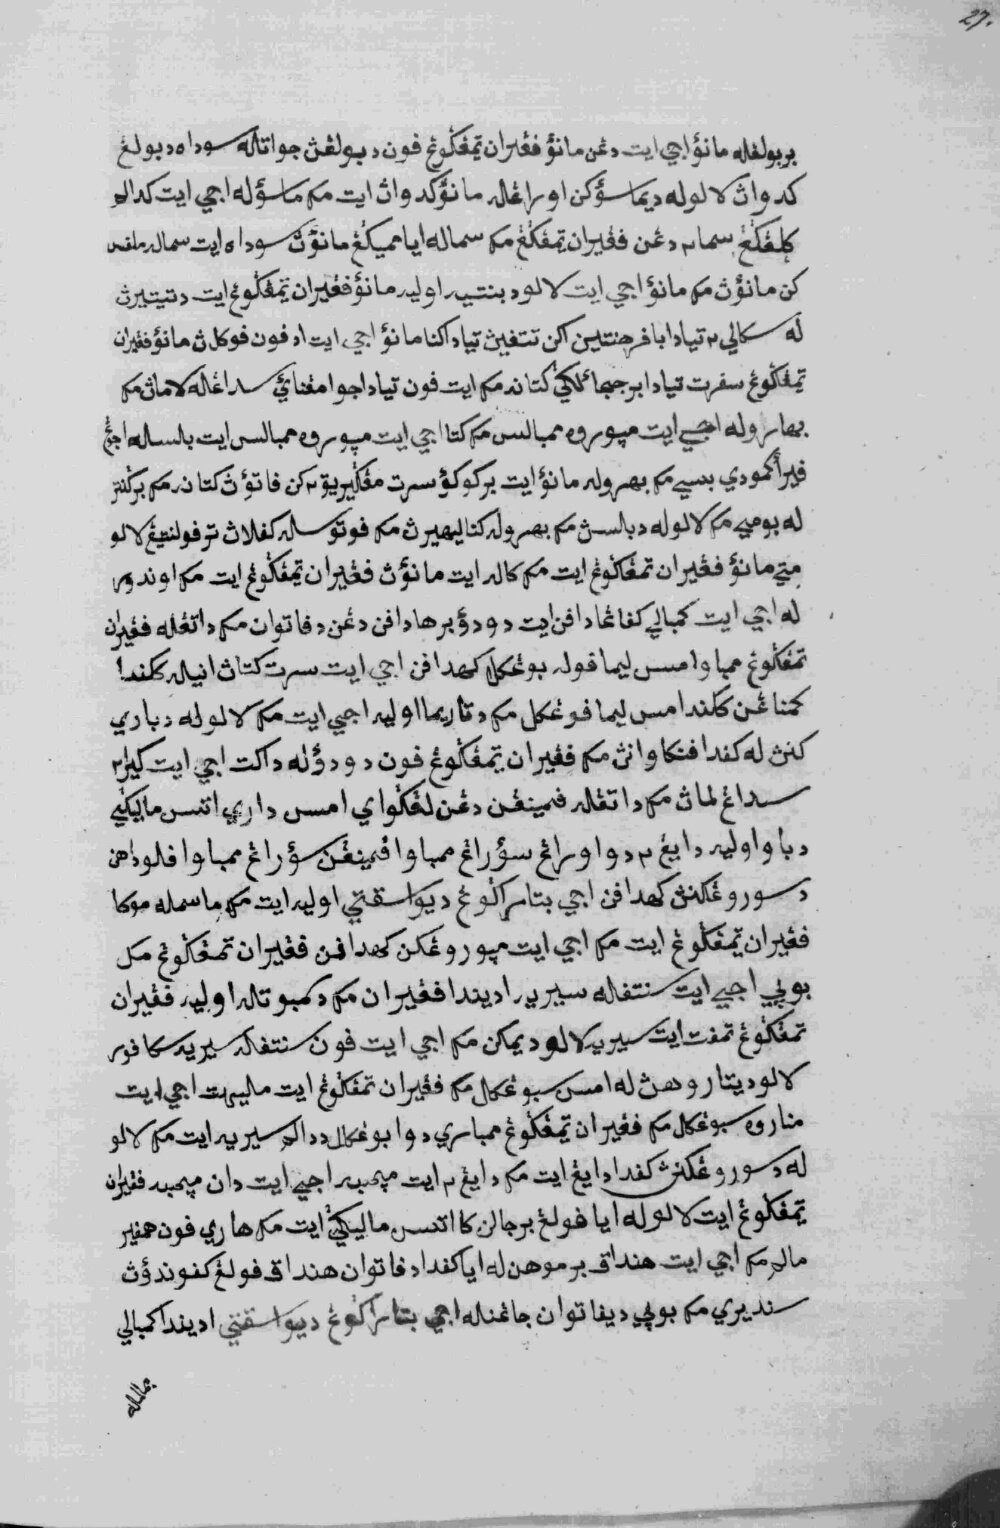 27.
بربولغله مانؤ اجي ايت دغن مانؤ فڠيران تمڠݢوڠ فون دبولڠن جواتله سوداه دبولڠ
كدواڽ لالوله ديماسؤكن اورڠله مانؤ كدواڽ ايت مك ماسؤله اجي ايت كدالم
ݢلڠݢڠ سمام دغن فڠيران تمڠݢڠ مك سماله ايا ممݢڠ مانؤڽ سوداه ايت سماله ملفس
كن مانؤڽ مك مانؤ اجي ايت لالو دبنتيه اوليه مانؤ فڠيران تمڠݢوڠ ايت دتيتيرڽ
له سكالي٢ تياد ابا فرهنتين اكن تتفيڽ تياد اكنا مانؤ اجي ايت اد فون فوكلڽ مانؤ فڠيران
تمڠݢوڠ سفرت تياد ابرجهاݢكي كتانه مك ايت فون تياد اجوا مڠناي سداغله لاماڽ مك
بهاروله اجي ايت مپوروه ممبالس مك كتا اجي ايت مپوروه ممبالس ايت بالسله اجڠ
فيرأ كمودي بسي مك بهروله مانؤ ايت بركوكؤ سرت مڠݢيريڤ٢كن فاتؤڽ كتانه مك برݢنتر
له بومي مك لالوله دبالسڽ مك بهروله كنا ليهيرڽ مك فوتوسله كفلاڽ ترفولنتيڠ لالو
متي مانؤ فڠيران تمڠݢوڠ ايت مك كاله ايت مانؤڽ فڠيران تمڠݢوڠ ايت مك اوندور
له اجي ايت كمبالي كفاغادافن ايت دودؤ برهادافن دغن دفاتوان مك داتڠله فڠيران
تمڠݢوڠ ممباوا امس ليما فوله بوڠكل كهدافن اجي ايت سرت كتاڽ انيله كلندا
كمنا غن كلندا امس ليما فوڠكل مك دتاريما اوليه اجي ايت مك لالوله دباري
كنڽ له كفدا فنكاوانڽ مك فڠيران تمڠݢوڠ فون دودؤله داكت اجي ايت كيرا٢
سداغ لماڽ مك داتڠله فمينڠن دغن لڠكواي امس داري اتس ماليݢي
دباوا اوليه دايڠ٢ دوا اورڠ سؤرڠ ممباوا فمينڠن سؤرڠ ممباوا فلوداهن
دسوروڠكنڽ كهدافن اجي بتارا اݢوڠ ديوا سقتي اوليه ايت مك ماسمله موكا
فڠيران تمڠݢوڠ ايت مك اجي ايت مپوروڠكن كهدافن فڠيران تمڠݢوڠ مك
بوپي اجي ايت سنتفله سيريه اديندا فڠيران مك دكمبوتله اوليه فڠيران
تمڠݢوڠ تمفت ايت سيريه لالو ديمكن مك اجي ايت فون سنتفله سيريه سكافور
لالو ديتاروهڽ له امس سبوڠكل مك فڠيران تمڠݢوڠ ايت مليهت اجي ايت
مناروه سبوڠكل مك فڠيران تمڠݢوڠ ممباري دوا بوڠكال ددالم سيريه ايت مك لالو
له دسوروڠكنڽ كفدا دايڠ ايت مك دايڠ٢ ايت مپمبه اجي ايت دان مپمبه فڠيران
تمڠݢوڠ ايت لالوله ايا فولڠ برجالن كا اتس ماليݢي ايت مك هاري فون همفير
مالم مك اجي ايت هندق برموهنله ايا كفدا دفاتوان هندق فولڠ كفوندؤڽ
سنديري مك بوپي ديفاتوان جاڠنله اجي بتارا اݢوڠ ديوا سقتي اديندا كمبالي